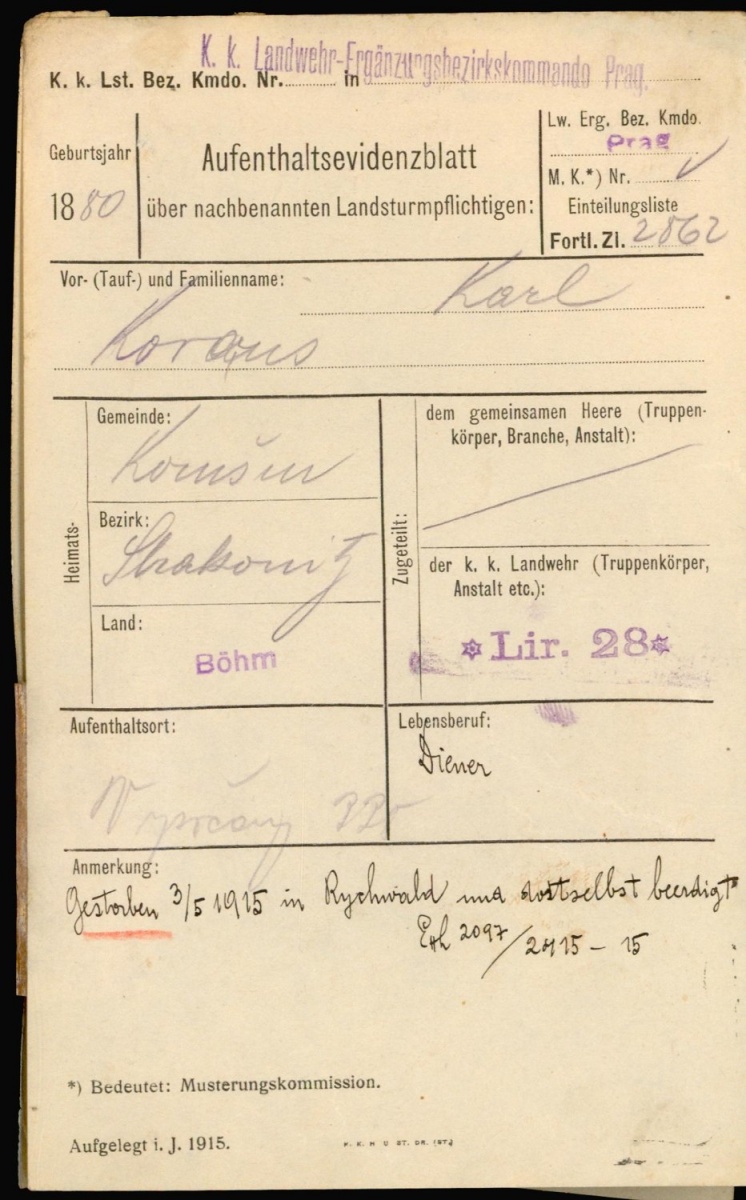 K. k. Landwehr-Ergänzungsbezirkskommando Prag.
K. k. Lst. Bez. Kmdo. Nr. in
Lw. Erg. Bez. Kmdo.
Prag
Geburtsjahr
1880
Aufenthaltsevidenzblatt
über nachbenannten Landsturmpflichtigen:
M. K.*) Nr.
Einteilungsliste
Fortl. Zl. 2862
Vor- (Tauf-) und Familienname:
Karl
Koraus
Heimats-
Gemeinde:
Komšin
Bezirk:
Strakonitz
Land:
Böhm
Zugeteilt:
dem gemeinsamen Heere (Truppen-
körper, Branche, Anstalt):
der k. k. Landwehr (Truppenkörper,
Anstalt etc.):
Lir. 28
Aufenthaltsort:
Lebensberuf:
Diener
Anmerkung:
Gestorben 3/5 1915 in Rychwald und dortselbst beerdigt
2097/2415 - 15
*) Bedeutet: Musterungskommission.
Aufgelegt i. J. 1915.